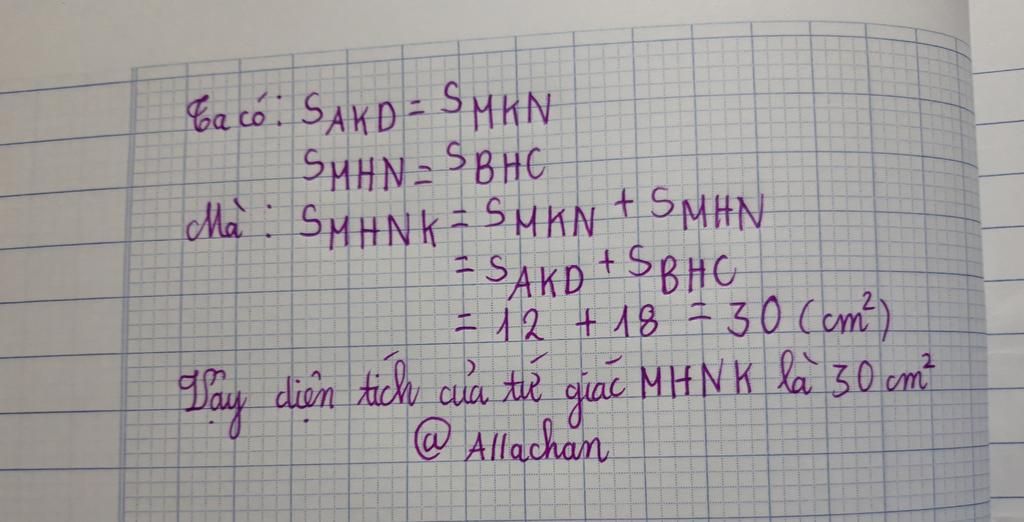 Ta có: SAKD = SMKN
SMHN = SBHC
Mà: SMHNK = SMKN + SMHN
= SAKD + SBHC
= 12 + 18 = 30 (cm²)
Vậy diện tích của tứ giác MHNK là 30 cm²
@ Allachan